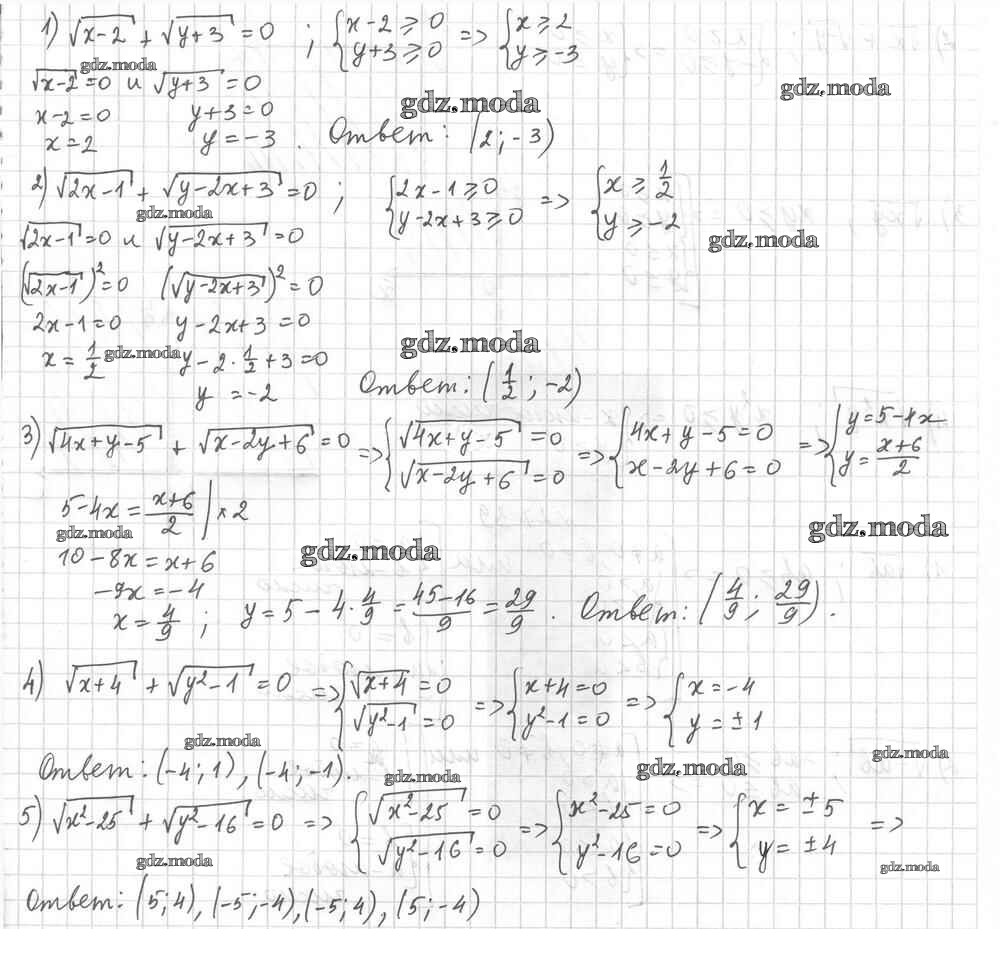 1) √(x-2) + √(y+3) = 0 ; { x-2 ≥ 0 y+3 ≥ 0 => { x ≥ 2 y ≥ -3
gdz.moda
√(x-2) = 0 и √(y+3) = 0
gdz.moda
gdz.moda
x-2=0 y+3=0
x=2 y=-3 . Ответ: (2; -3)
2) √(2x-1) + √(y-2x+3) = 0 ; { 2x-1 ≥ 0 y-2x+3 ≥ 0 => { x ≥ 1/2 y ≥ -2
gdz.moda
√(2x-1) = 0 и √(y-2x+3) = 0
gdz.moda
(√(2x-1))² = 0 (√(y-2x+3))² = 0
2x-1=0 y-2x+3=0
gdz.moda
x = 1/2 gdz.moda y - 2·1/2 + 3 = 0
y = -2 Ответ: (1/2; -2)
3) √(4x+y-5) + √(x-2y+6) = 0 => { √(4x+y-5) = 0 √(x-2y+6) = 0 => { 4x+y-5=0 x-2y+6=0 => { y=5-4x y=(x+6)/2
5-4x = (x+6)/2 | × 2
gdz.moda
gdz.moda
gdz.moda
10-8x = x+6
-9x = -4
x = 4/9 ; y = 5 - 4·4/9 = (45-16)/9 = 29/9 . Ответ: (4/9; 29/9).
4) √(x+4) + √(y²-1) = 0 => { √(x+4) = 0 √(y²-1) = 0 => { x+4=0 y²-1=0 => { x=-4 y=±1
gdz.moda
gdz.moda
Ответ: (-4; 1), (-4; -1).
gdz.moda
gdz.moda
5) √(x²-25) + √(y²-16) = 0 => { √(x²-25) = 0 √(y²-16) = 0 => { x²-25=0 y²-16=0 => { x=±5 y=±4 =>
gdz.moda
gdz.moda
Ответ: (5; 4), (-5; -4), (-5; 4), (5; -4)